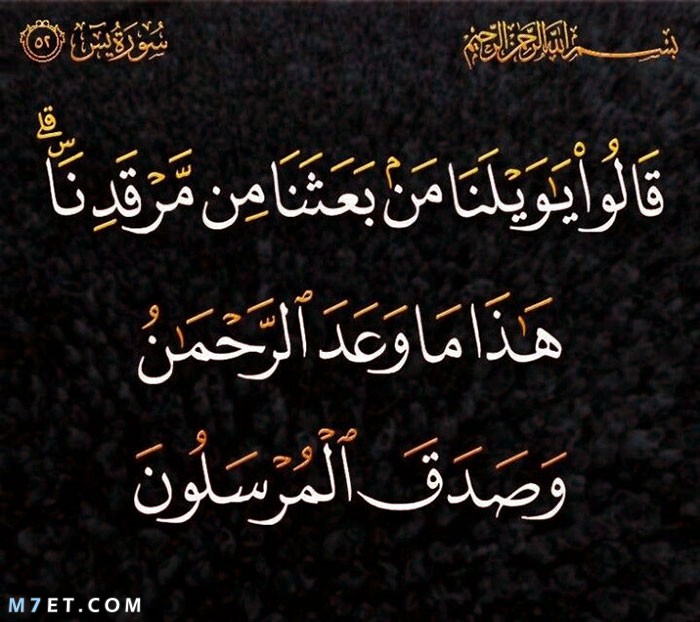 بسم الله الرحمن الرحيم
سُورَةُ يس ٥٢
قَالُواْ يَٰوَيۡلَنَا مَنۢ بَعَثَنَا مِن مَّرۡقَدِنَاۜۗ
هَٰذَا مَا وَعَدَ ٱلرَّحۡمَٰنُ
وَصَدَقَ ٱلۡمُرۡسَلُونَ
M7ET.COM